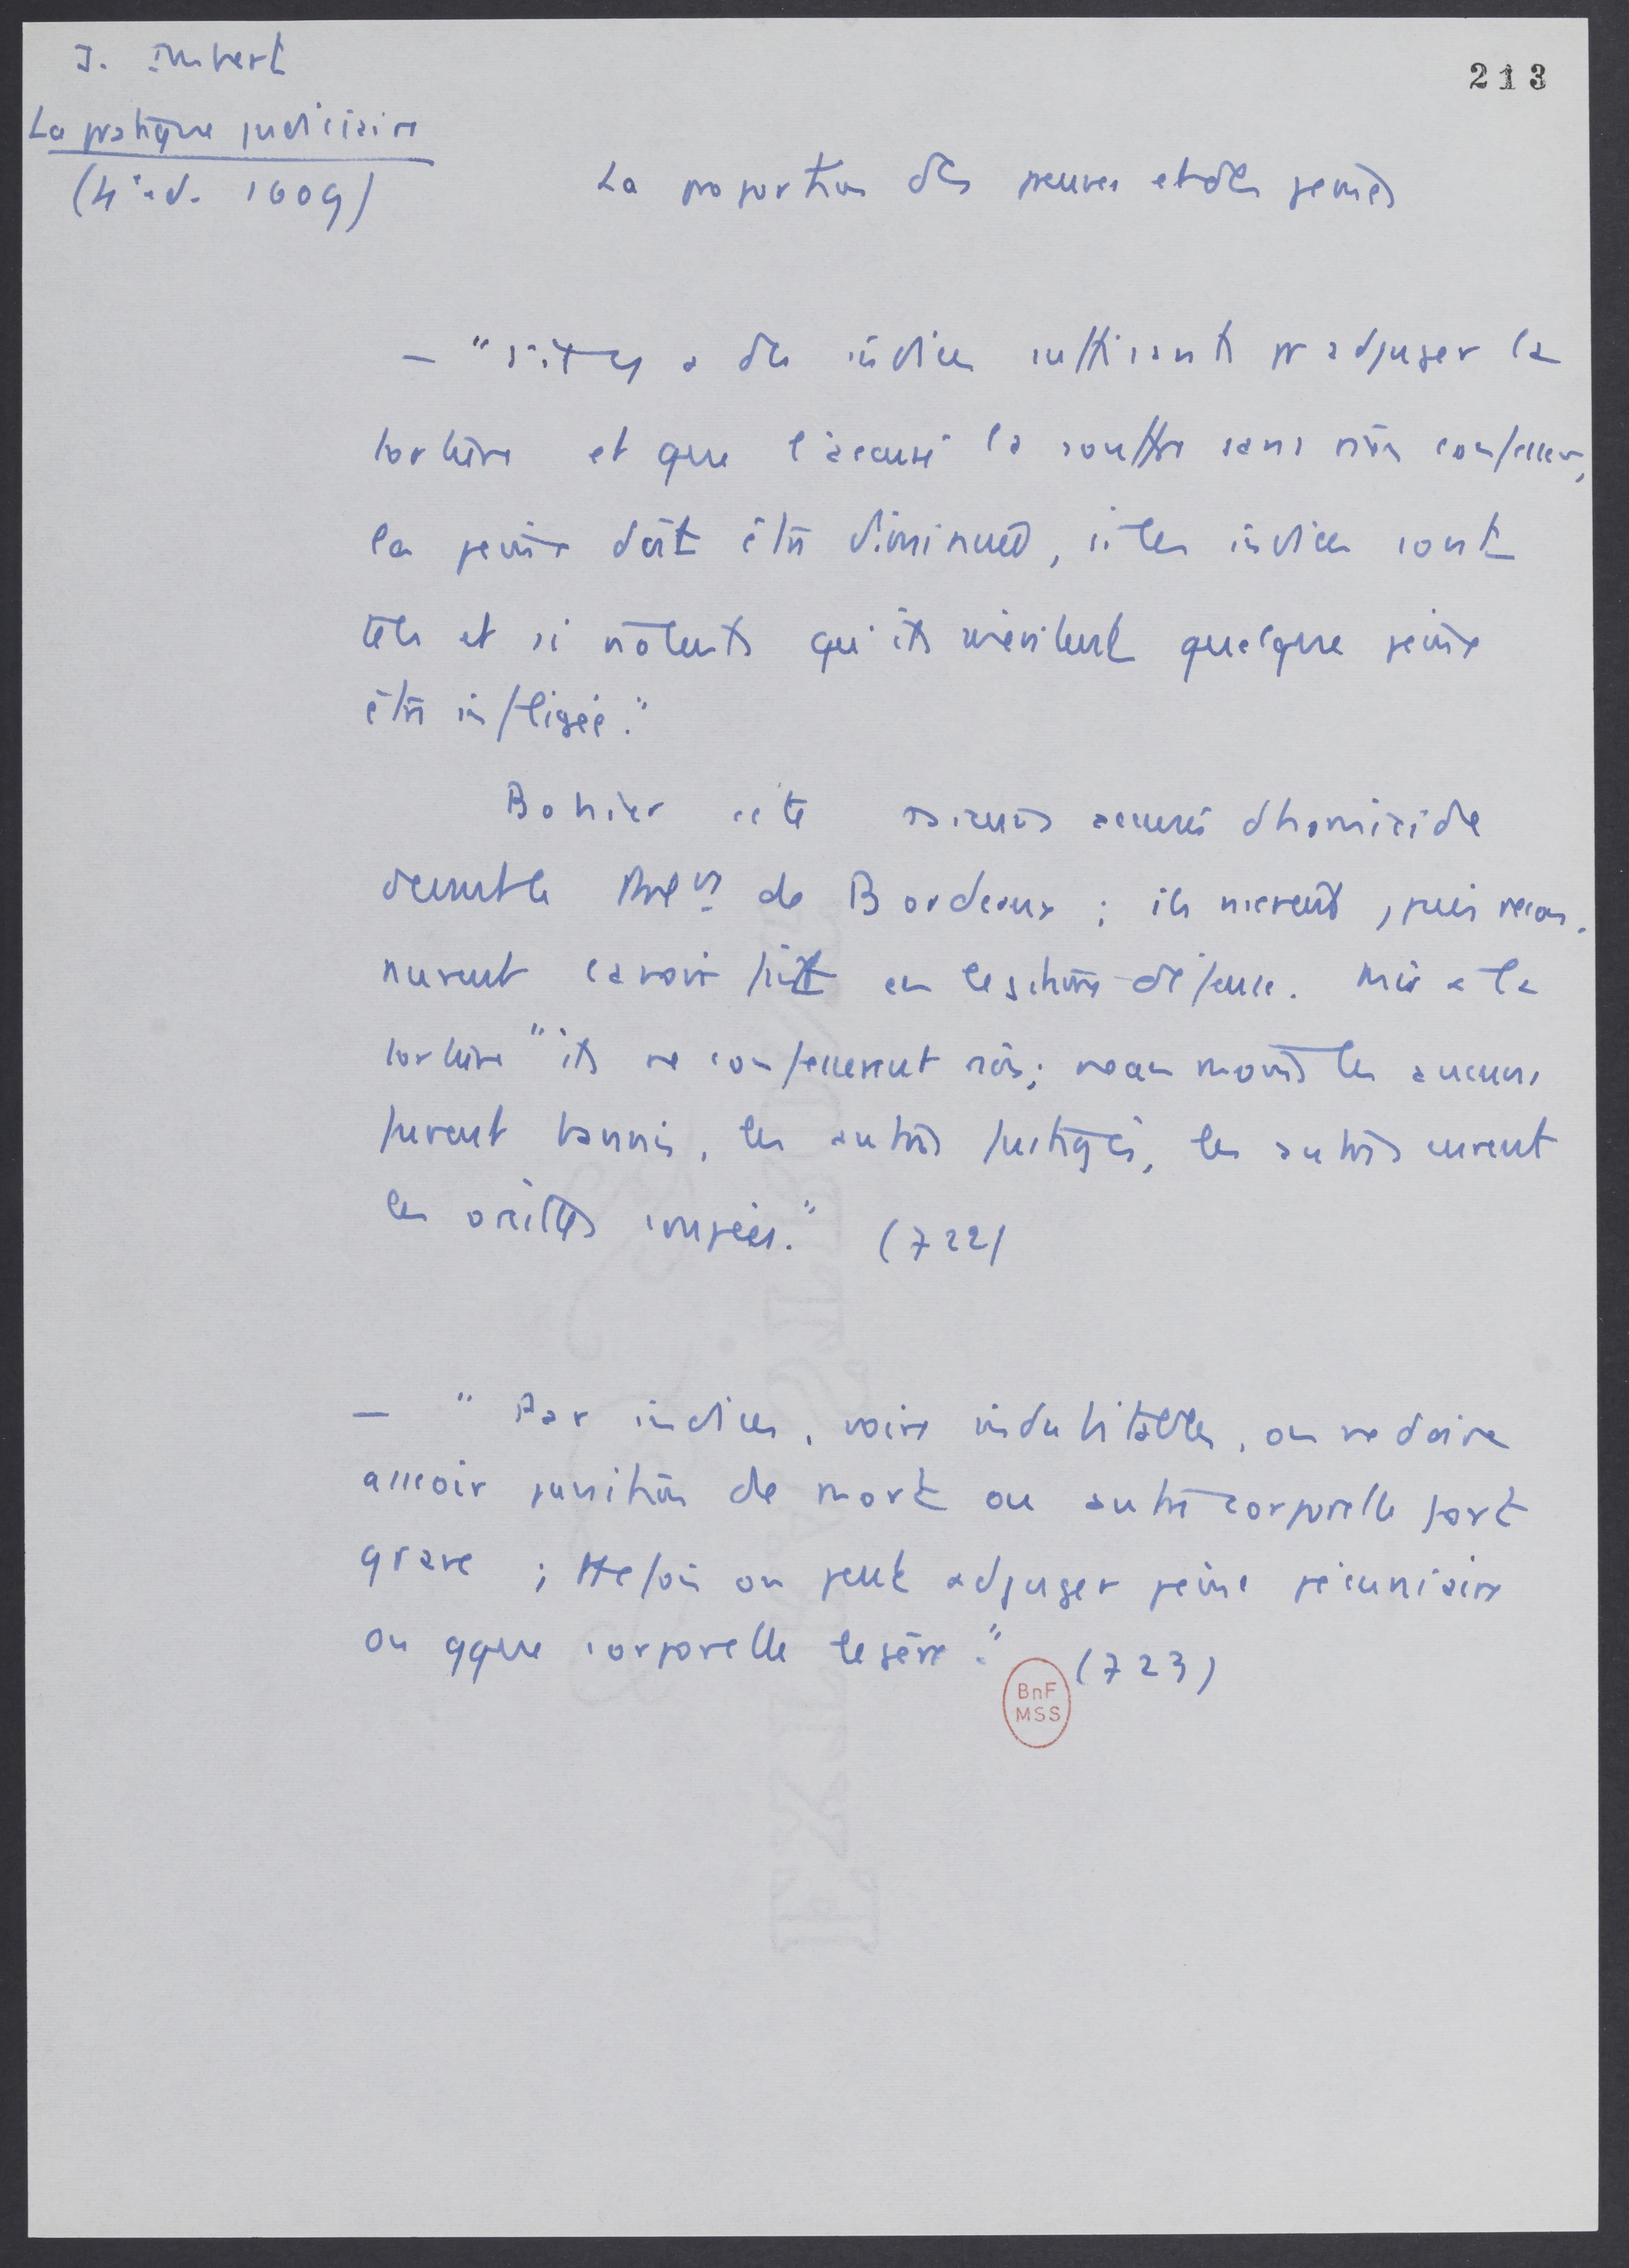 J. Imbert
213
La pratique judiciaire
(4e ed. 1609)
La proportion des preuves et des peines
— "s'il y a des indices suffisants pr adjuger la
torture et que l'accusé la souffre sans rien confesser,
la peine doit être diminuée, si les indices sont
tels et si violents qu'ils méritent quelque peine
être infligée."
Bohier cite accusés d'homicide
devant le de Bordeaux ; ils nièrent, puis recon-
nurent l'avoir fait en légitime défense. Mis à la
torture "ils ne confessèrent rien ; neanmoins les aucuns
furent bannis, les autres fustigés, les autres eurent
les oreilles coupées." (722)
— "Par indices, voire indubitables, on ne doive
asseoir punition de mort ou autre corporelle fort
grave ; ttefois on peut adjuger peine pécuniaire
ou qque corporelle legère." (723)
BnF
MSS